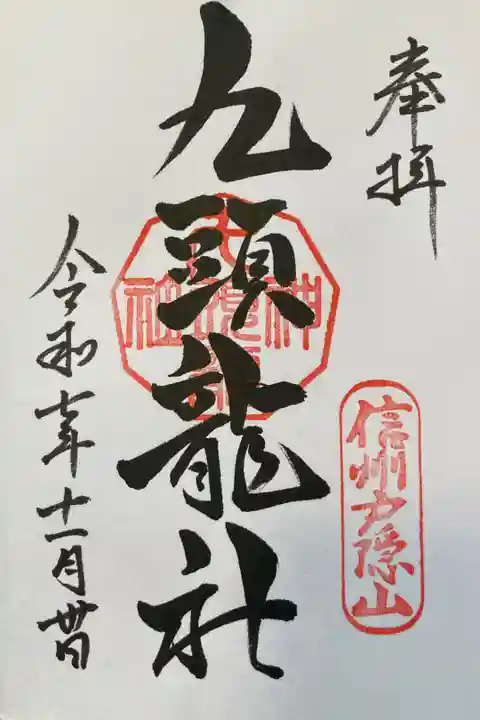 奉拝
信州戸隠山
九頭龍社
神
社
令和七年十一月日